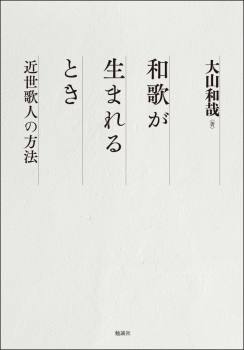 大山和哉［著］
和歌が
生まれる
とき
近世歌人の方法
勉誠社